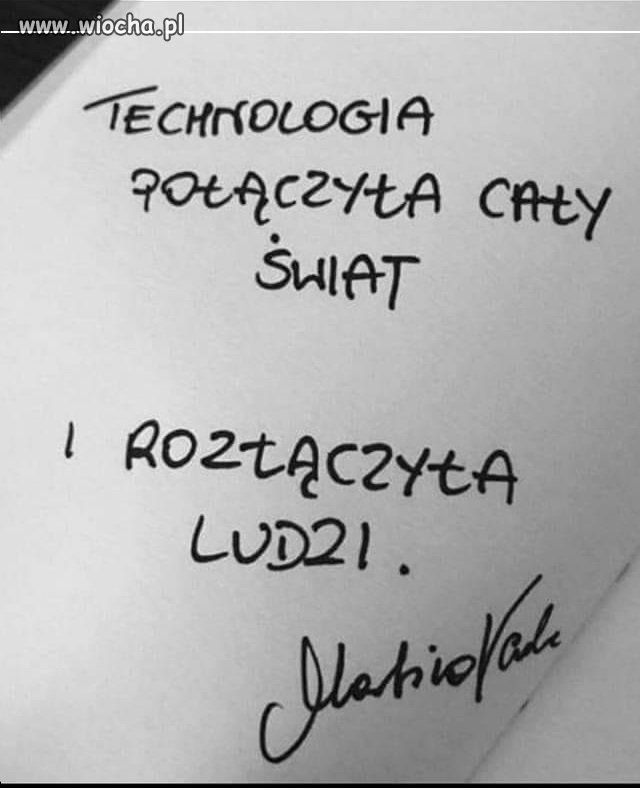 www.wiocha.pl
TECHNOLOGIA
POŁĄCZYŁA CAŁY
ŚWIAT
I ROZŁĄCZYŁA
LUDZI.